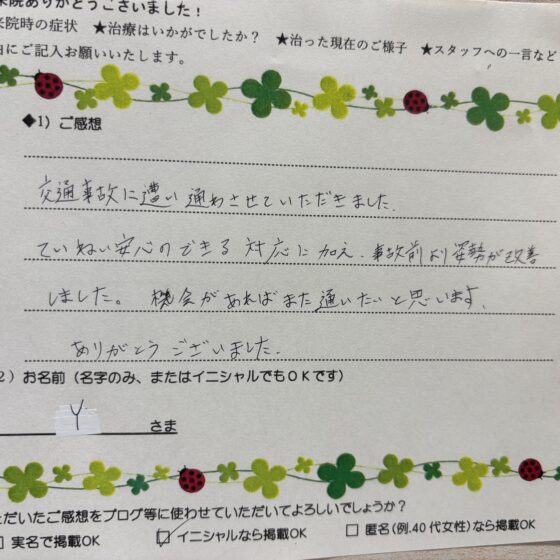 来院ありがとうございました！
来院時の症状　★治療はいかがでしたか？　★治った現在のご様子　★スタッフへの一言など
由にご記入お願いいたします。
◆1）ご感想
交通事故に遭い通わさせていただきました.
ていねい安心のできる対応に加え、事故前より姿勢が改善
しました。機会があればまた通いたいと思います.
ありがとうございました.
2）お名前（名字のみ、またはイニシャルでもＯＫです）
Y さま
ただいたご感想をブログ等に使わせていただいてよろしいでしょうか？
□ 実名で掲載OK　☑ イニシャルなら掲載OK　□ 匿名（例.40代女性）なら掲載OK